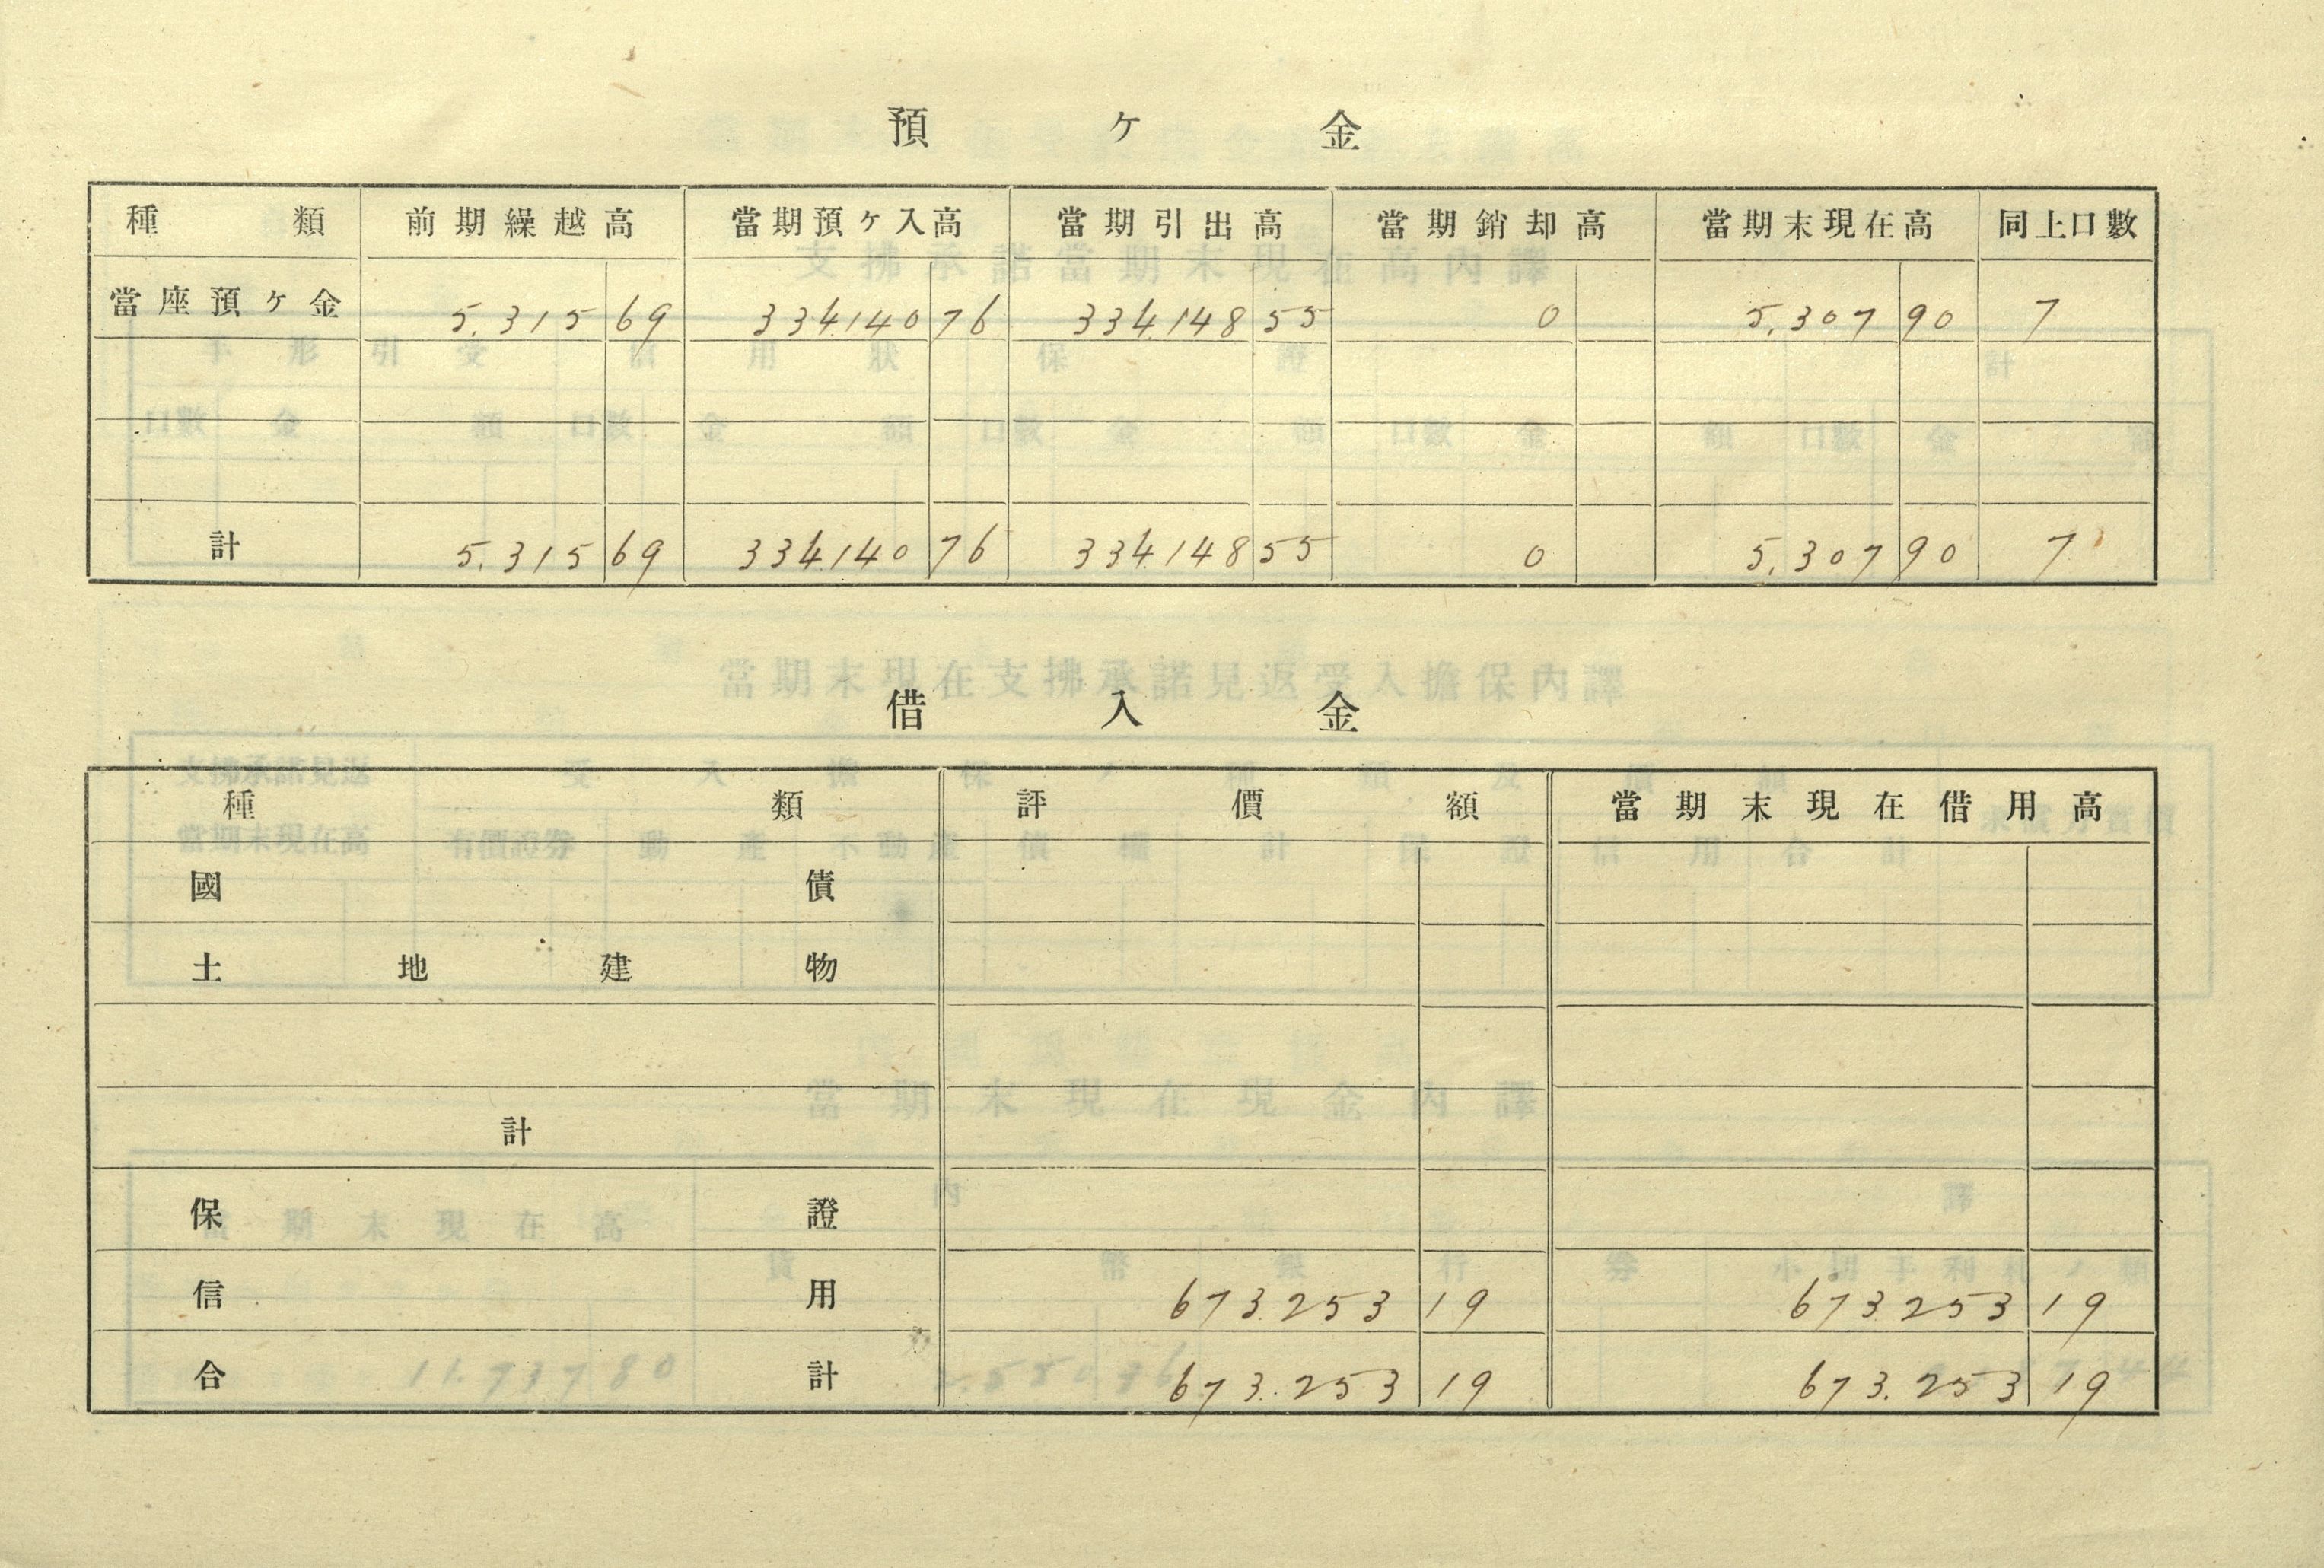 預ヶ金
種類 前期繰越高 當期預ヶ入高 當期引出高 當期銷却高 當期末現在高 同上口數
當座預ヶ金 5.315 69 334.140 76 334.148 55 0 5.307 90 7
計 5.315 69 334.140 76 334.148 55 0 5.307 90 7
借入金
種類 評價額 當期末現在借用高
國債
土地建物
計
保證
信用 673.253 19 673.253 19
合計 673.253 19 673.253 19